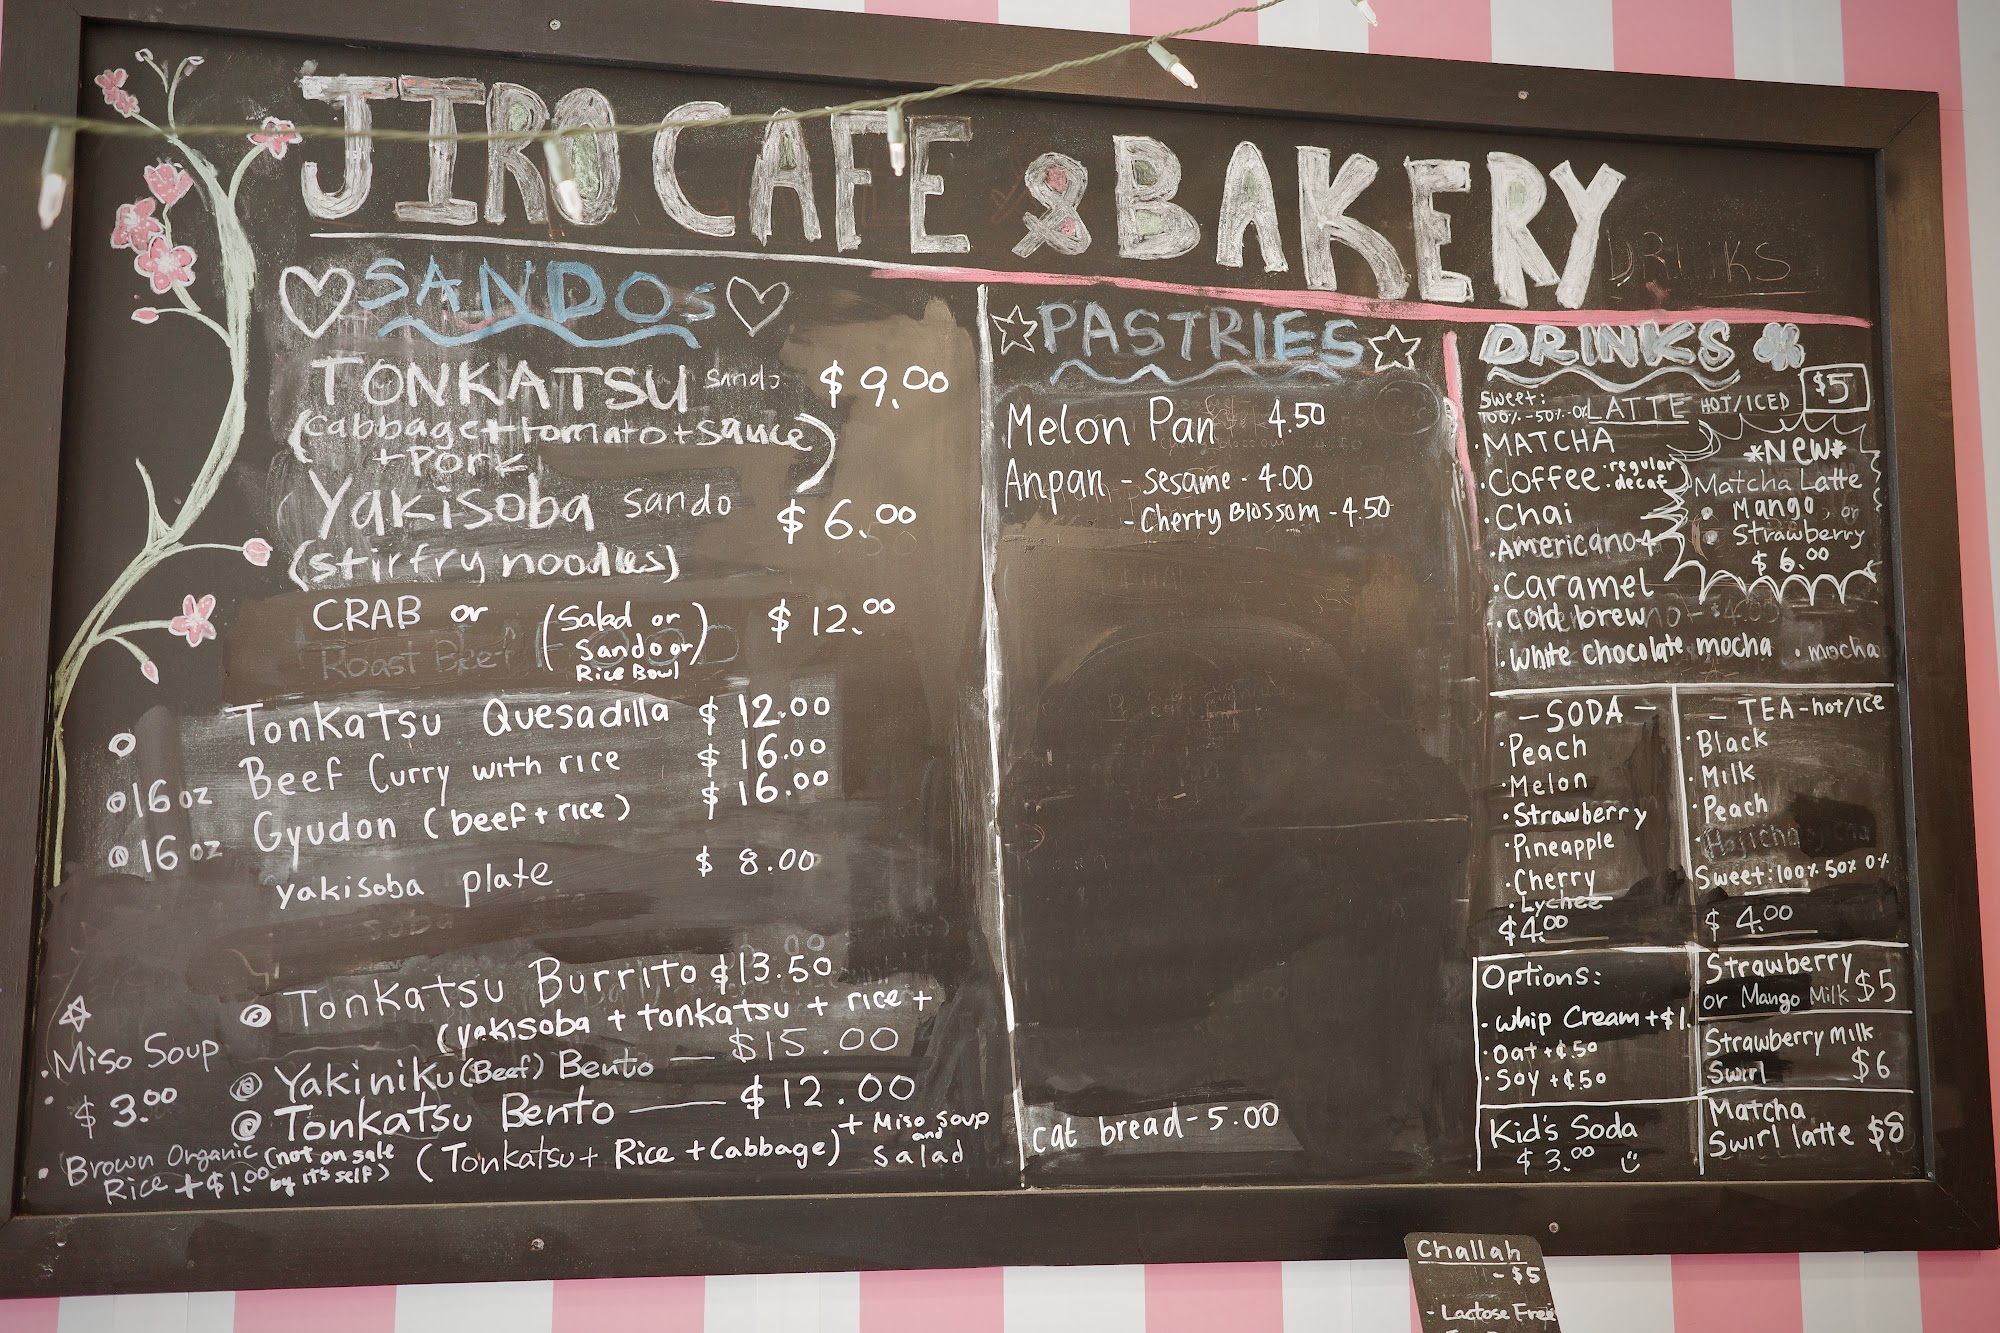 JIRO CAFE & BAKERY
DRINKS
SANDOs
TONKATSU sando $9.00
(cabbage + tomato + sauce
+ Pork)
Yakisoba sando $6.00
(stirfry noodles)
CRAB or (Salad or $12.00
Roast Beef Sando or
Rice Bowl)
Tonkatsu Quesadilla $12.00
16 oz Beef Curry with rice $16.00
16 oz Gyudon (beef + rice) $16.00
yakisoba plate $8.00
Tonkatsu Burrito $13.50
(yakisoba + tonkatsu + rice +
Yakiniku (Beef) Bento — $15.00
Tonkatsu Bento — $12.00
(Tonkatsu + Rice + Cabbage) + Miso Soup
and
Salad
Miso Soup
$3.00
Brown Organic (not on sale
Rice + $1.00 by it's self)
PASTRIES
Melon Pan 4.50
Anpan - Sesame - 4.00
- Cherry Blossom - 4.50
cat bread - 5.00
DRINKS
$5
Sweet:
100%-50%-0% LATTE HOT/ICED
MATCHA
Coffee: regular
: decaf
Chai
Americano-4
Caramel
cold brew
white chocolate mocha • mocha
*New*
Matcha Latte
Mango, or
Strawberry
$6.00
- SODA -
Peach
Melon
Strawberry
Pineapple
Cherry
Lychee
$4.00
- TEA - hot/ice
Black
Milk
Peach
Hojicha
Sweet: 100% 50% 0%
$4.00
Options:
whip Cream + $1.
Oat + ¢50
Soy + ¢50
Kid's Soda
$3.00
Strawberry
or Mango Milk $5
Strawberry Milk
Swirl $6
Matcha
Swirl latte $8
Challah
- $5
- Lactose Free